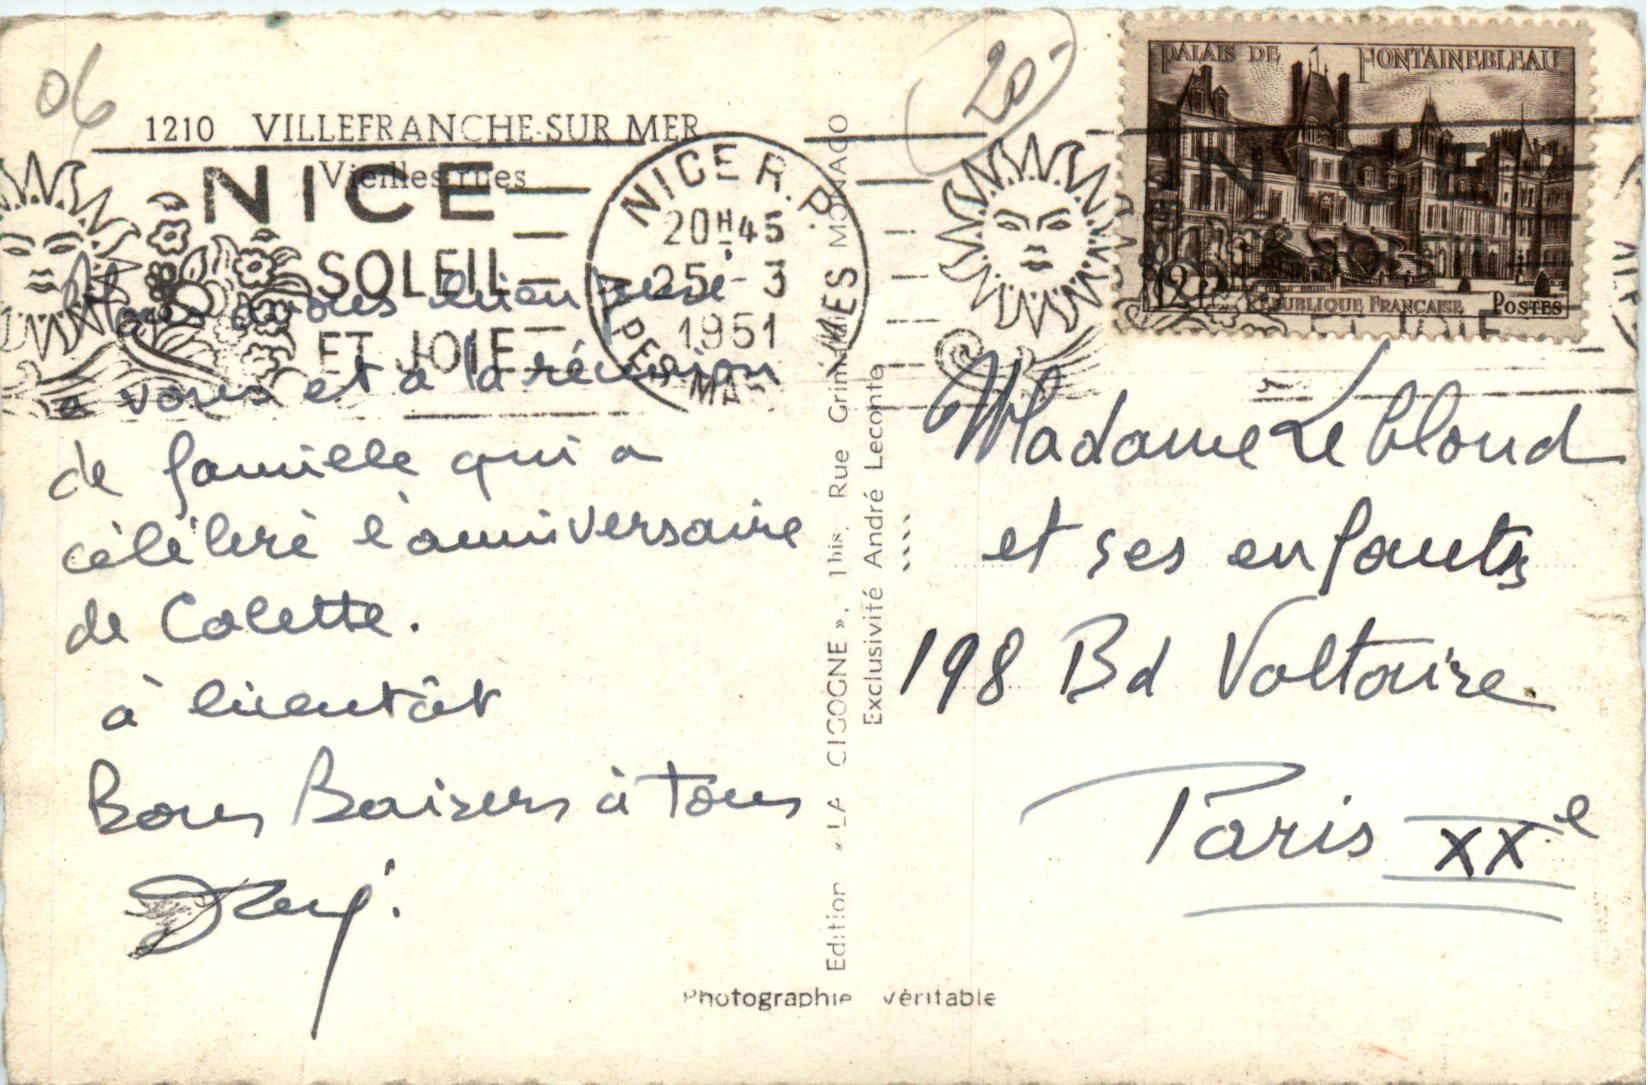 06
20-
1210 VILLEFRANCHE-SUR MER
Vieilles rues
NICE
SOLEIL
ET JOIE
NICE R.P.
20H45
25-3
1951
ALPES-MARMES
PALAIS DE FONTAINEBLEAU
12F
RÉPUBLIQUE FRANÇAISE POSTES
avons bien pensé
à vous et à la réunion
de famille qui a
célébré l'anniversaire
de Colette.
à bientôt
Bons Baisers à tous
Edition «LA CIGOGNE», 1 bis, Rue Grimaldi MONACO
Exclusivité André Leconte
Madame Leblond
et ses enfants
198 Bd Voltaire
Paris XXe
Photographie véritable